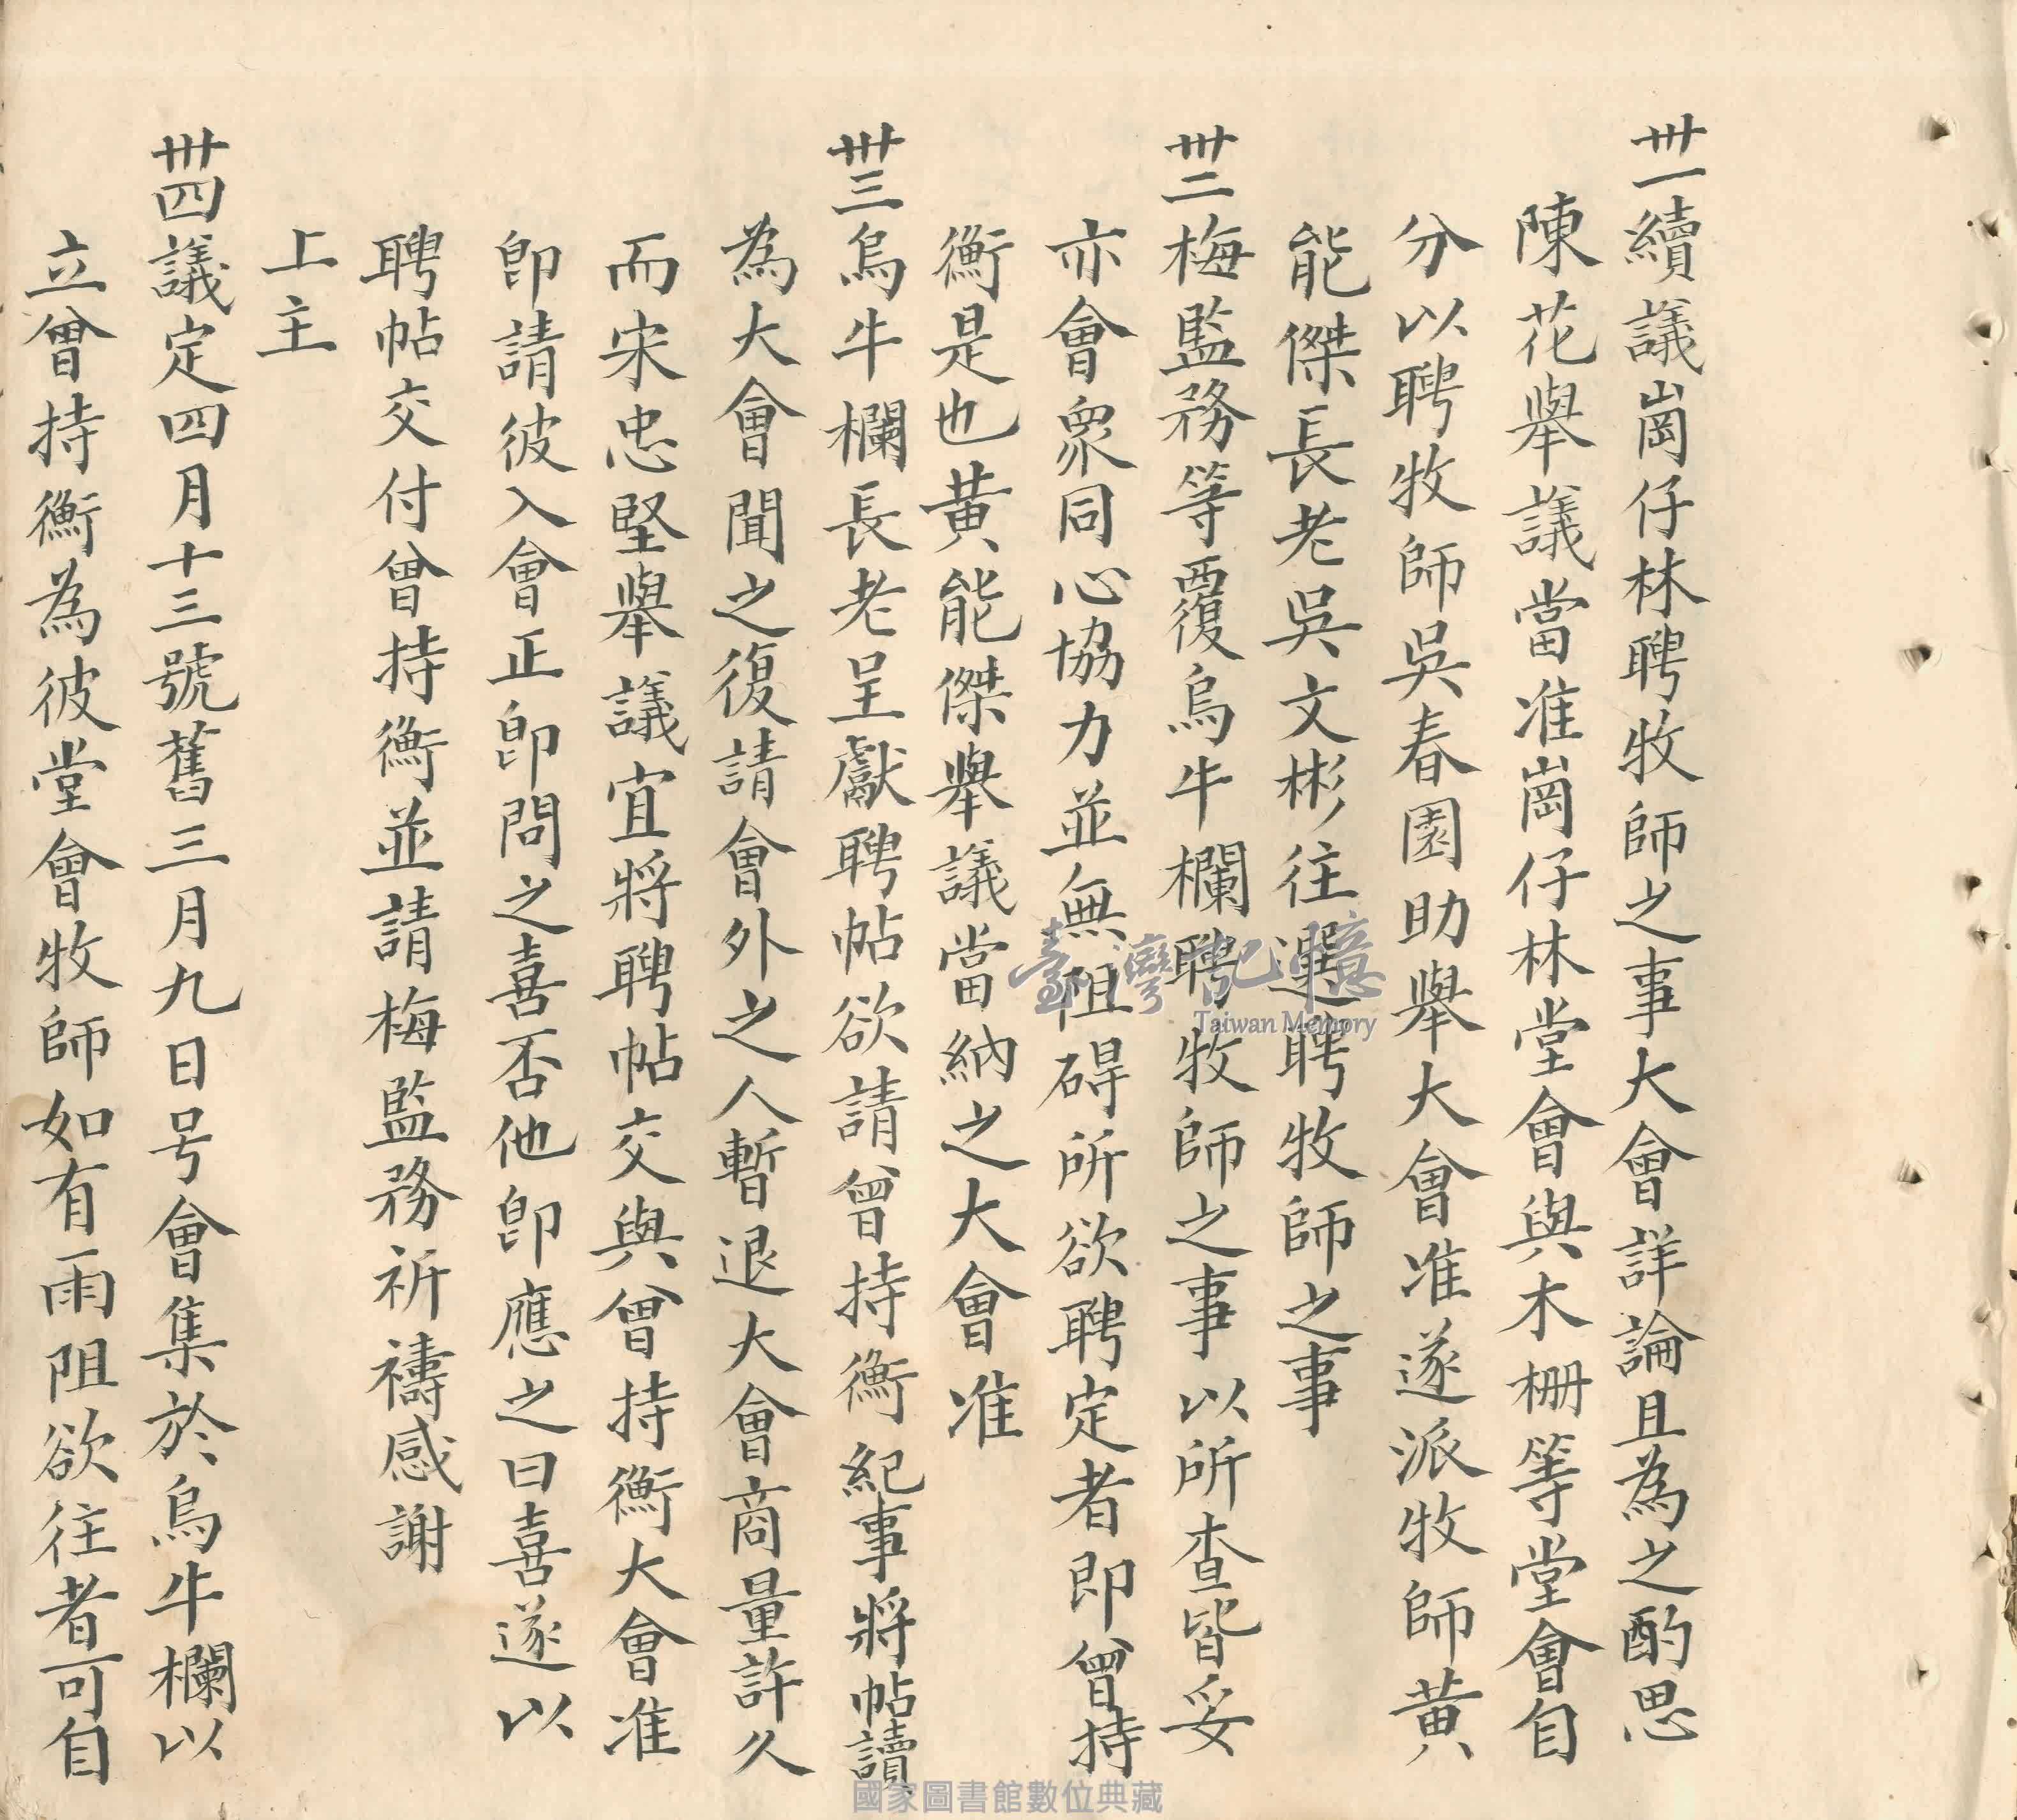 卅一續議崗仔林聘牧師之事大會詳論且為之酌思
陳花舉議當准崗仔林堂會與木柵等堂會自
分以聘牧師吳春園助舉大會准遂派牧師黃
能傑長老吳文彬往選聘牧師之事
卅二梅監務等覆烏牛欄聘牧師之事以所查皆妥
亦會眾同心協力並無阻碍所欲聘定者即曾持
衡是也黃能傑舉議當納之大會准
卅三烏牛欄長老呈獻聘帖欲請曾持衡紀事將帖讀
為大會聞之復請會外之人暫退大會商量許久
而宋忠堅舉議宜將聘帖交與曾持衡大會准
即請彼入會正即問之喜否他即應之曰喜遂以
聘帖交付曾持衡並請梅監務祈禱感謝
上主
卅四議定四月十三號舊三月九日号會集於烏牛欄以
立曾持衡為彼堂會牧師如有雨阻欲往者可自
臺灣記憶
Taiwan Memory
國家圖書館數位典藏